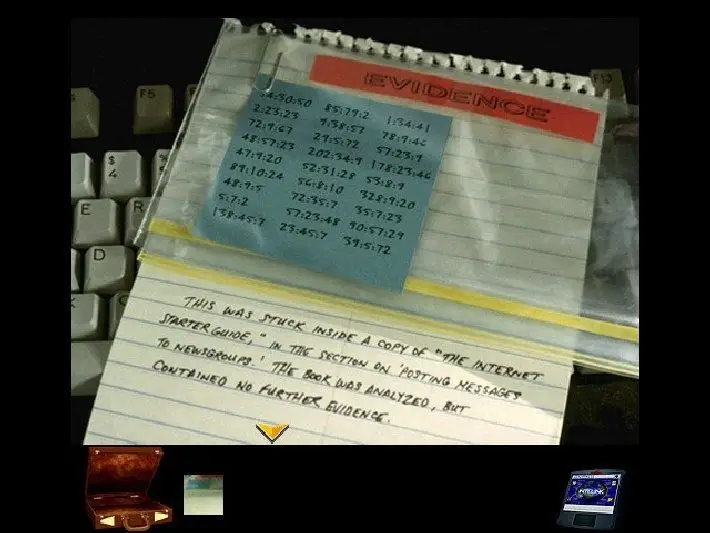 F5
F13
EVIDENCE
85:79:2 1:34:41
2:23:23 9:38:57 78:9:46
72:9:67 29:5:72 57:23:9
48:57:23 202:34:9 178:23:46
47:9:20 52:31:28 53:8:9
89:10:24 56:8:10 328:9:20
48:9:5 72:35:7 35:7:23
5:7:2 57:23:48 90:57:29
138:45:7 23:45:7 39:5:72
$
4
E
R
D
THIS WAS STUCK INSIDE A COPY OF "THE INTERNET
STARTER GUIDE," IN THE SECTION ON 'POSTING MESSAGES
TO NEWSGROUPS.' THE BOOK WAS ANALYZED, BUT
CONTAINED NO FURTHER EVIDENCE.